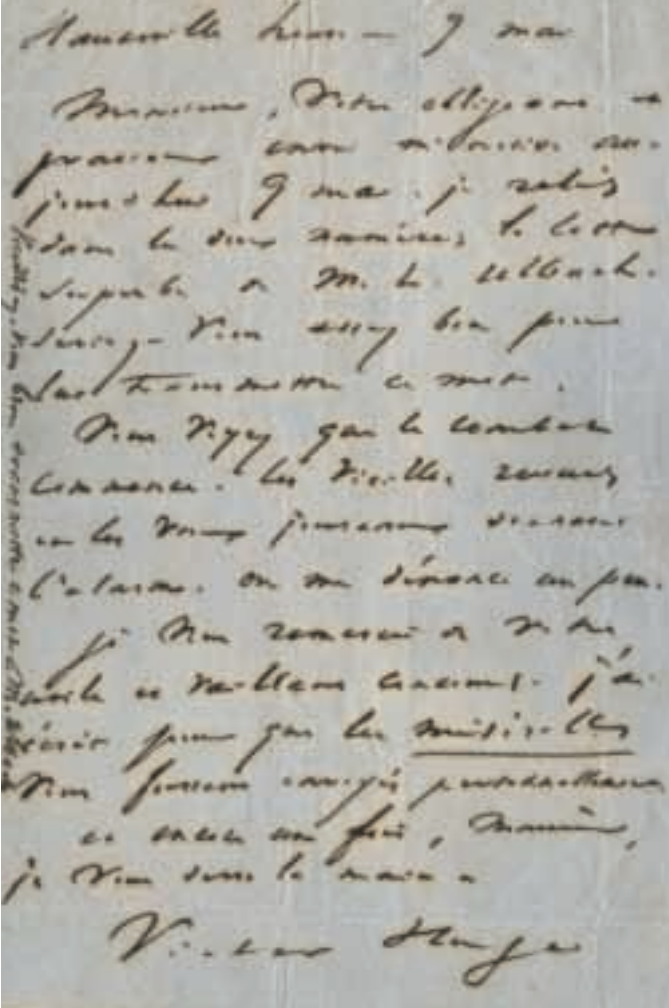 Hauteville house — 9 mai
Monsieur, Votre obligeant et
précieux envoi m'arrive au-
jourd'hui 9 mai. je relis
dans les deux numéros la lettre
superbe de M. L. Ulbach.
serez-vous assez bon pour
lui transmettre ce mot.
Vous voyez que le combat
commence. les vieilles revues
et les vieux journaux
l'alarme. on me dénonce un peu.
je vous remercie de votre
utile et vaillant concours. j'ai
écrit pour que les misérables
vous fussent envoyés personnellement
et encore une fois, Monsieur,
je vous serre la main.
Victor Hugo